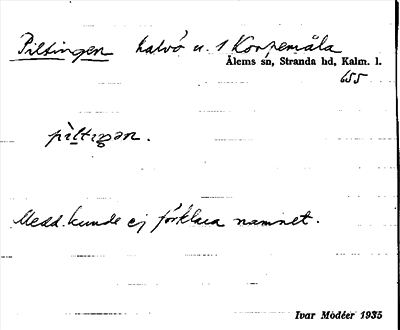 Piltingen halvö u. 1 Korpemåla
Ålems sn, Stranda hd, Kalm. l.
655
piltiŋən.
Medd. kunde ej förklara namnet.
Ivar Modéer 1935